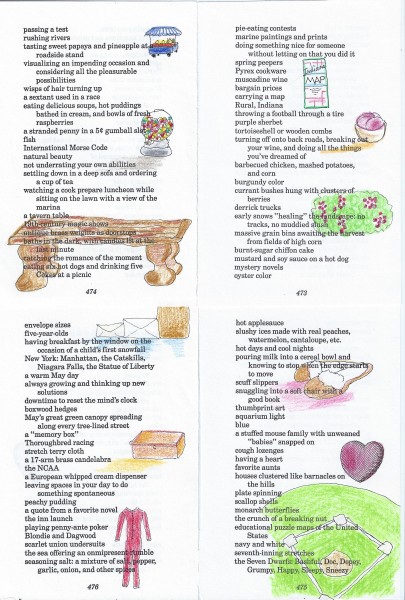 passing a test
rushing rivers
tasting sweet papaya and pineapple at a
roadside stand
visualizing an impending occasion and
considering all the pleasurable
possibilities
wisps of hair turning up
a sextant used in a race
eating delicious soups, hot puddings
bathed in cream, and bowls of fresh
raspberries
a stranded penny in a 5¢ gumball slot
fish
International Morse Code
natural beauty
not underrating your own abilities
settling down in a deep sofa and ordering
a cup of tea
watching a cook prepare luncheon while
sitting on the lawn with a view of the
marina
a tavern table
19th-century magic shows
antique brass weights as doorstops
baths in the dark, with candles lit at the
last minute
catching the romance of the moment
eating six hot dogs and drinking five
Cokes at a picnic
474
pie-eating contests
marine paintings and prints
doing something nice for someone
without letting on that you did it
spring peepers
Pyrex cookware
muscadine wine
bargain prices
carrying a map
Rural, Indiana
Indiana
MAP
throwing a football through a tire
purple sherbet
tortoiseshell or wooden combs
turning off onto back roads, breaking out
your wine, and doing all the things
you've dreamed of
barbecued chicken, mashed potatoes,
and corn
burgundy color
currant bushes hung with clusters of
berries
derrick trucks
early snows "healing" the landscape: no
tracks, no muddied slush
massive grain bins awaiting the harvest
from fields of high corn
burnt-sugar chiffon cake
mustard and soy sauce on a hot dog
mystery novels
oyster color
473
envelope sizes
five-year-olds
having breakfast by the window on the
occasion of a child's first snowfall
New York: Manhattan, the Catskills,
Niagara Falls, the Statue of Liberty
a warm May day
always growing and thinking up new
solutions
downtime to reset the mind's clock
boxwood hedges
May's great green canopy spreading
along every tree-lined street
a "memory box"
Thoroughbred racing
stretch terry cloth
a 17-arm brass candelabra
the NCAA
a European whipped cream dispenser
leaving spaces in your day to do
something spontaneous
peachy pudding
a quote from a favorite novel
the inn launch
playing penny-ante poker
Blondie and Dagwood
scarlet union undersuits
the sea offering an omnipresent rumble
seasoning salt: a mixture of salt, pepper,
garlic, onion, and other spices
476
hot applesauce
slushy ices made with real peaches,
watermelon, cantaloupe, etc.
hot days and cool nights
pouring milk into a cereal bowl and
knowing to stop when the edge starts
to move
scuff slippers
snuggling into a soft chair with a
good book
thumbprint art
aquarium light
blue
a stuffed mouse family with unweaned
"babies" snapped on
cough lozenges
having a heart
favorite aunts
houses clustered like barnacles on
the hills
plate spinning
scallop shells
monarch butterflies
the crunch of a breaking nut
educational puzzle maps of the United
States
navy and white
seventh-inning stretches
the Seven Dwarfs: Bashful, Doc, Dopey,
Grumpy, Happy, Sleepy, Sneezy
475